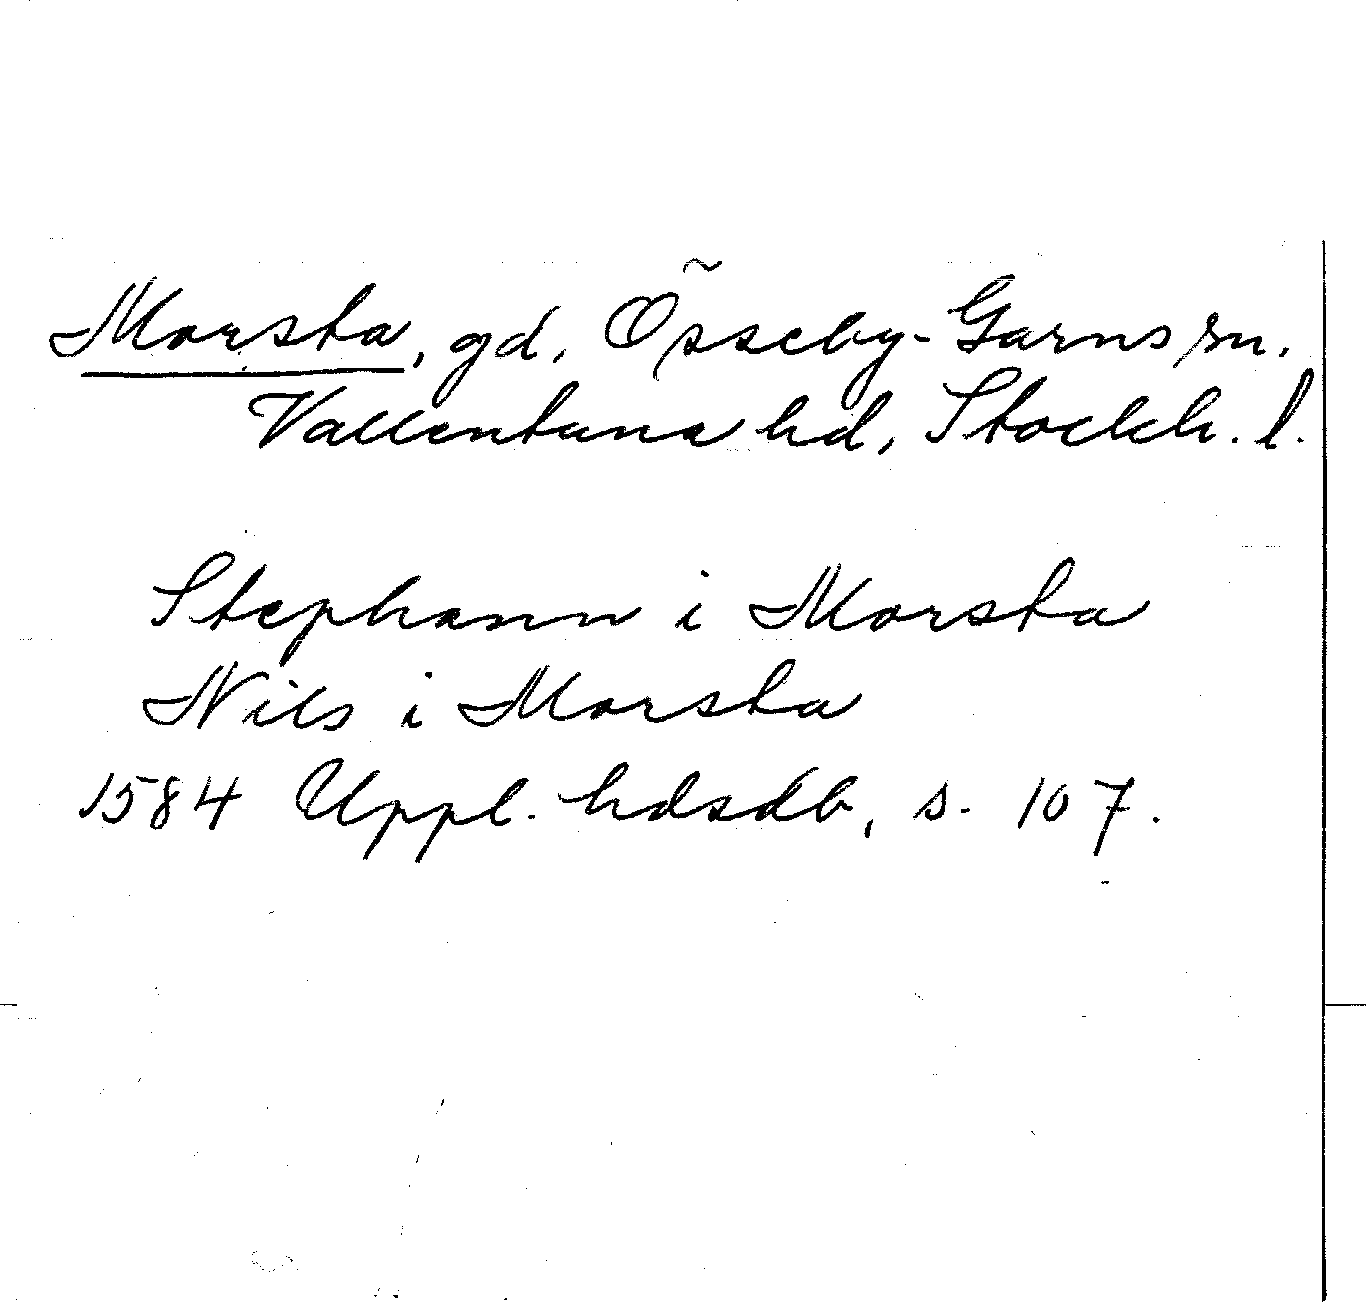 Morsta, gd, Össeby-Garns sn.
Vallentuna hd, Stockh. l.
Stephann i Morsta
Nils i Morsta
1584 Uppl. hdsdb, s. 107.